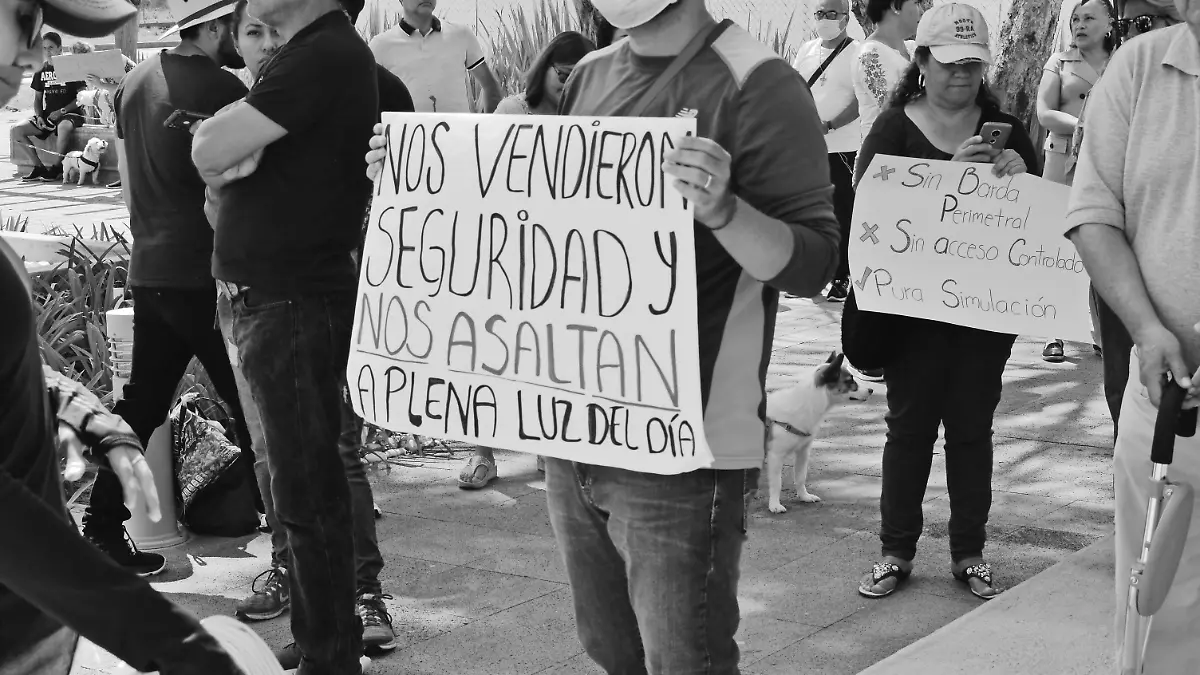 NOS VENDIERON
SEGURIDAD Y
NOS ASALTAN
A PLENA LUZ DEL DÍA
Sin Barda
Perimetral
Sin acceso Controlado
Pura Simulación